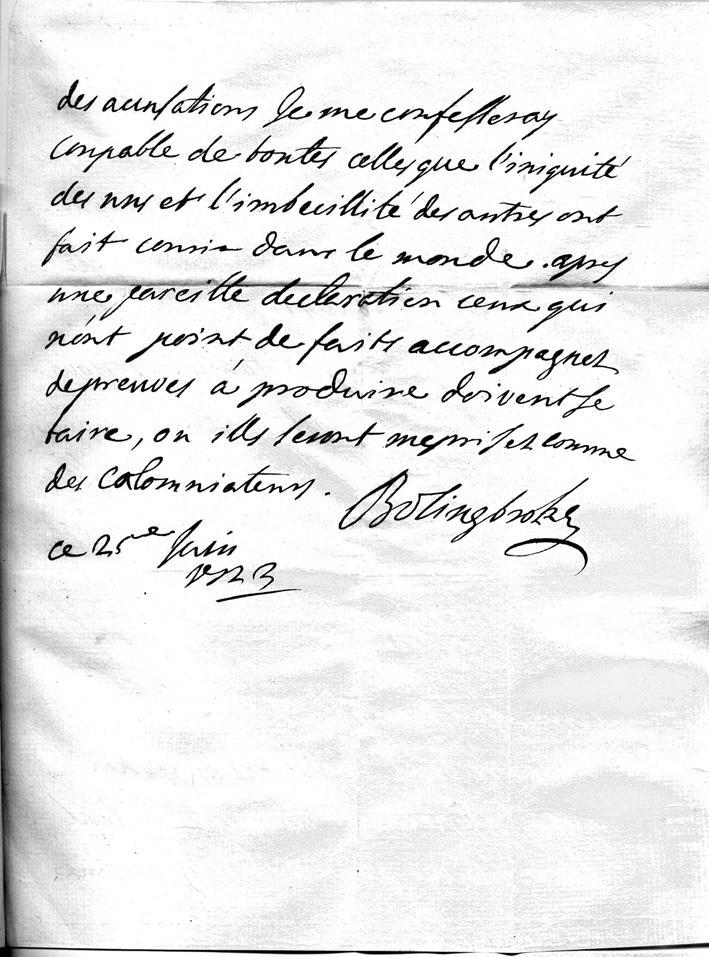 des accusations Je me confesseray
coupable de toutes celles que l'iniquité
des uns et l'imbecillité des autres ont
fait courir dans le monde. apres
une pareille declaration ceux qui
n'ont point de faits accompagnez
de preuves à produire doivent se
taire, ou ills seront meprisez comme
des calomniateurs.
Bolingbroke
ce 25e Juin
1723